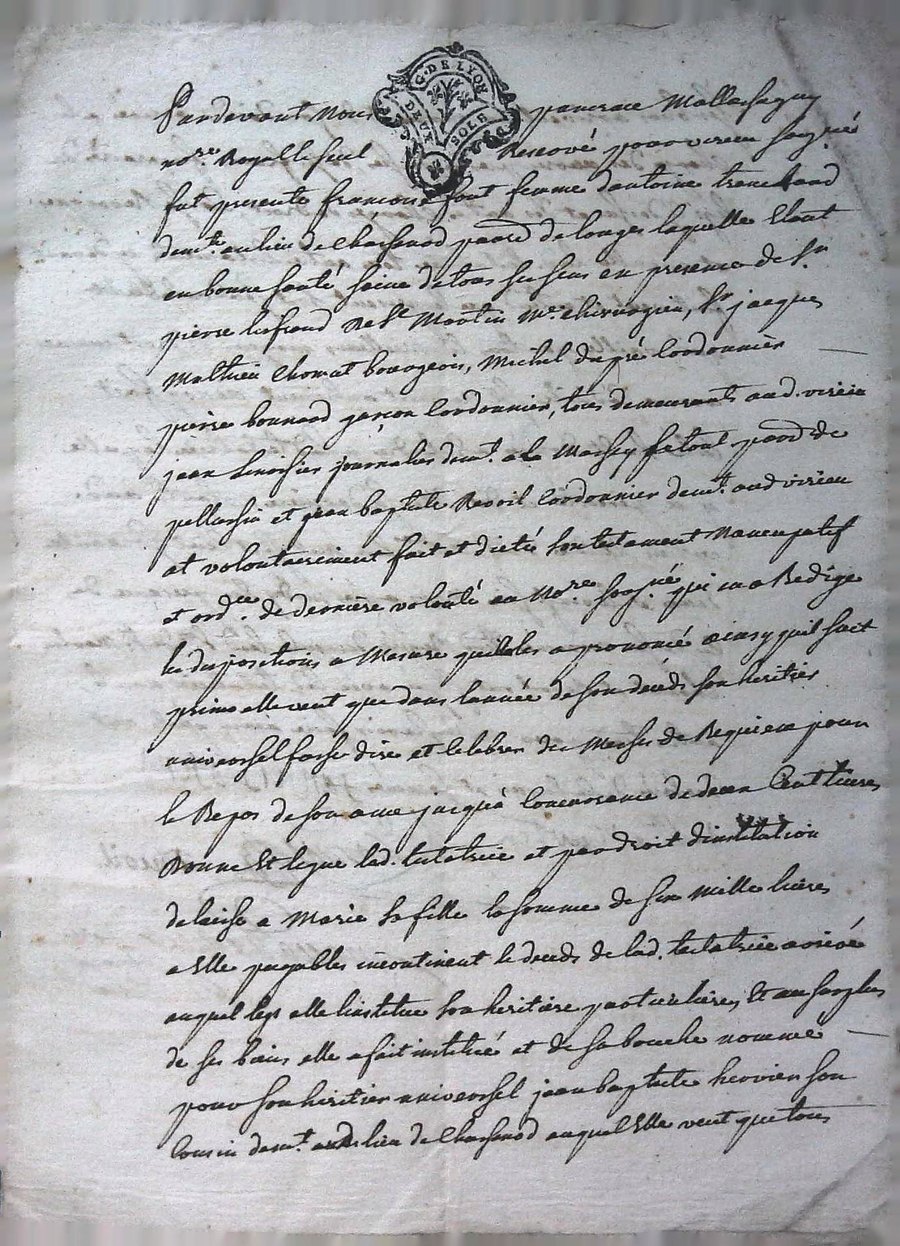 G. DE LYON
DEUX SOLS
Pardevant Nous pancrace Mallassagny
nore. Royalle seul Reservé pour virieu soussigné
fut presente francoise font femme dantoine tranchand
demte. au lieu de Chassenod parr. de longes laquelle Etant
en bonne santé saine de tous ses sens en presence de Sr.
pierre lefrand de St Martin Me. chirurgien, Sr. jacques
Mathieu Chomat bourgeois, Michel dupré Cordonnier
pierre bonnard garçon Cordonnier, tous demeurants aud. virieu
jean journalier demt. a la parr. de
pellussin et jean baptiste Revoil Cordonnier demt. aud virieu
at volontairement fait et dicté son testament Nuncupatif
et ordce. de derniere volonté au Nore. soussigné qui en a Redigé
les dispositions a Mesure quelle les a prononcé ainsy quil suit
primo elle veut que dans lannée de son décéds son heritier
universel fasse dire et celebrer des Messes de Requiem pour
le Repos de son ame jusqu'à concurrance de deux Cent livres
Donne Et legue lad. testatrice et par droit d'institution
delaisse a Marie sa fille la somme de six mille livres
a Elle payables incontinent le deceds de lad. testatrice arrivé
auquel legs elle linstitue son heritiere particuliere, Et au surplus
de ses biens elle a fait institué et de sa bouche nommé
pour son heritier universel jean baptiste hervier son
Cousin demt. aud. lieu de Chassenod auquel Elle veut que tous